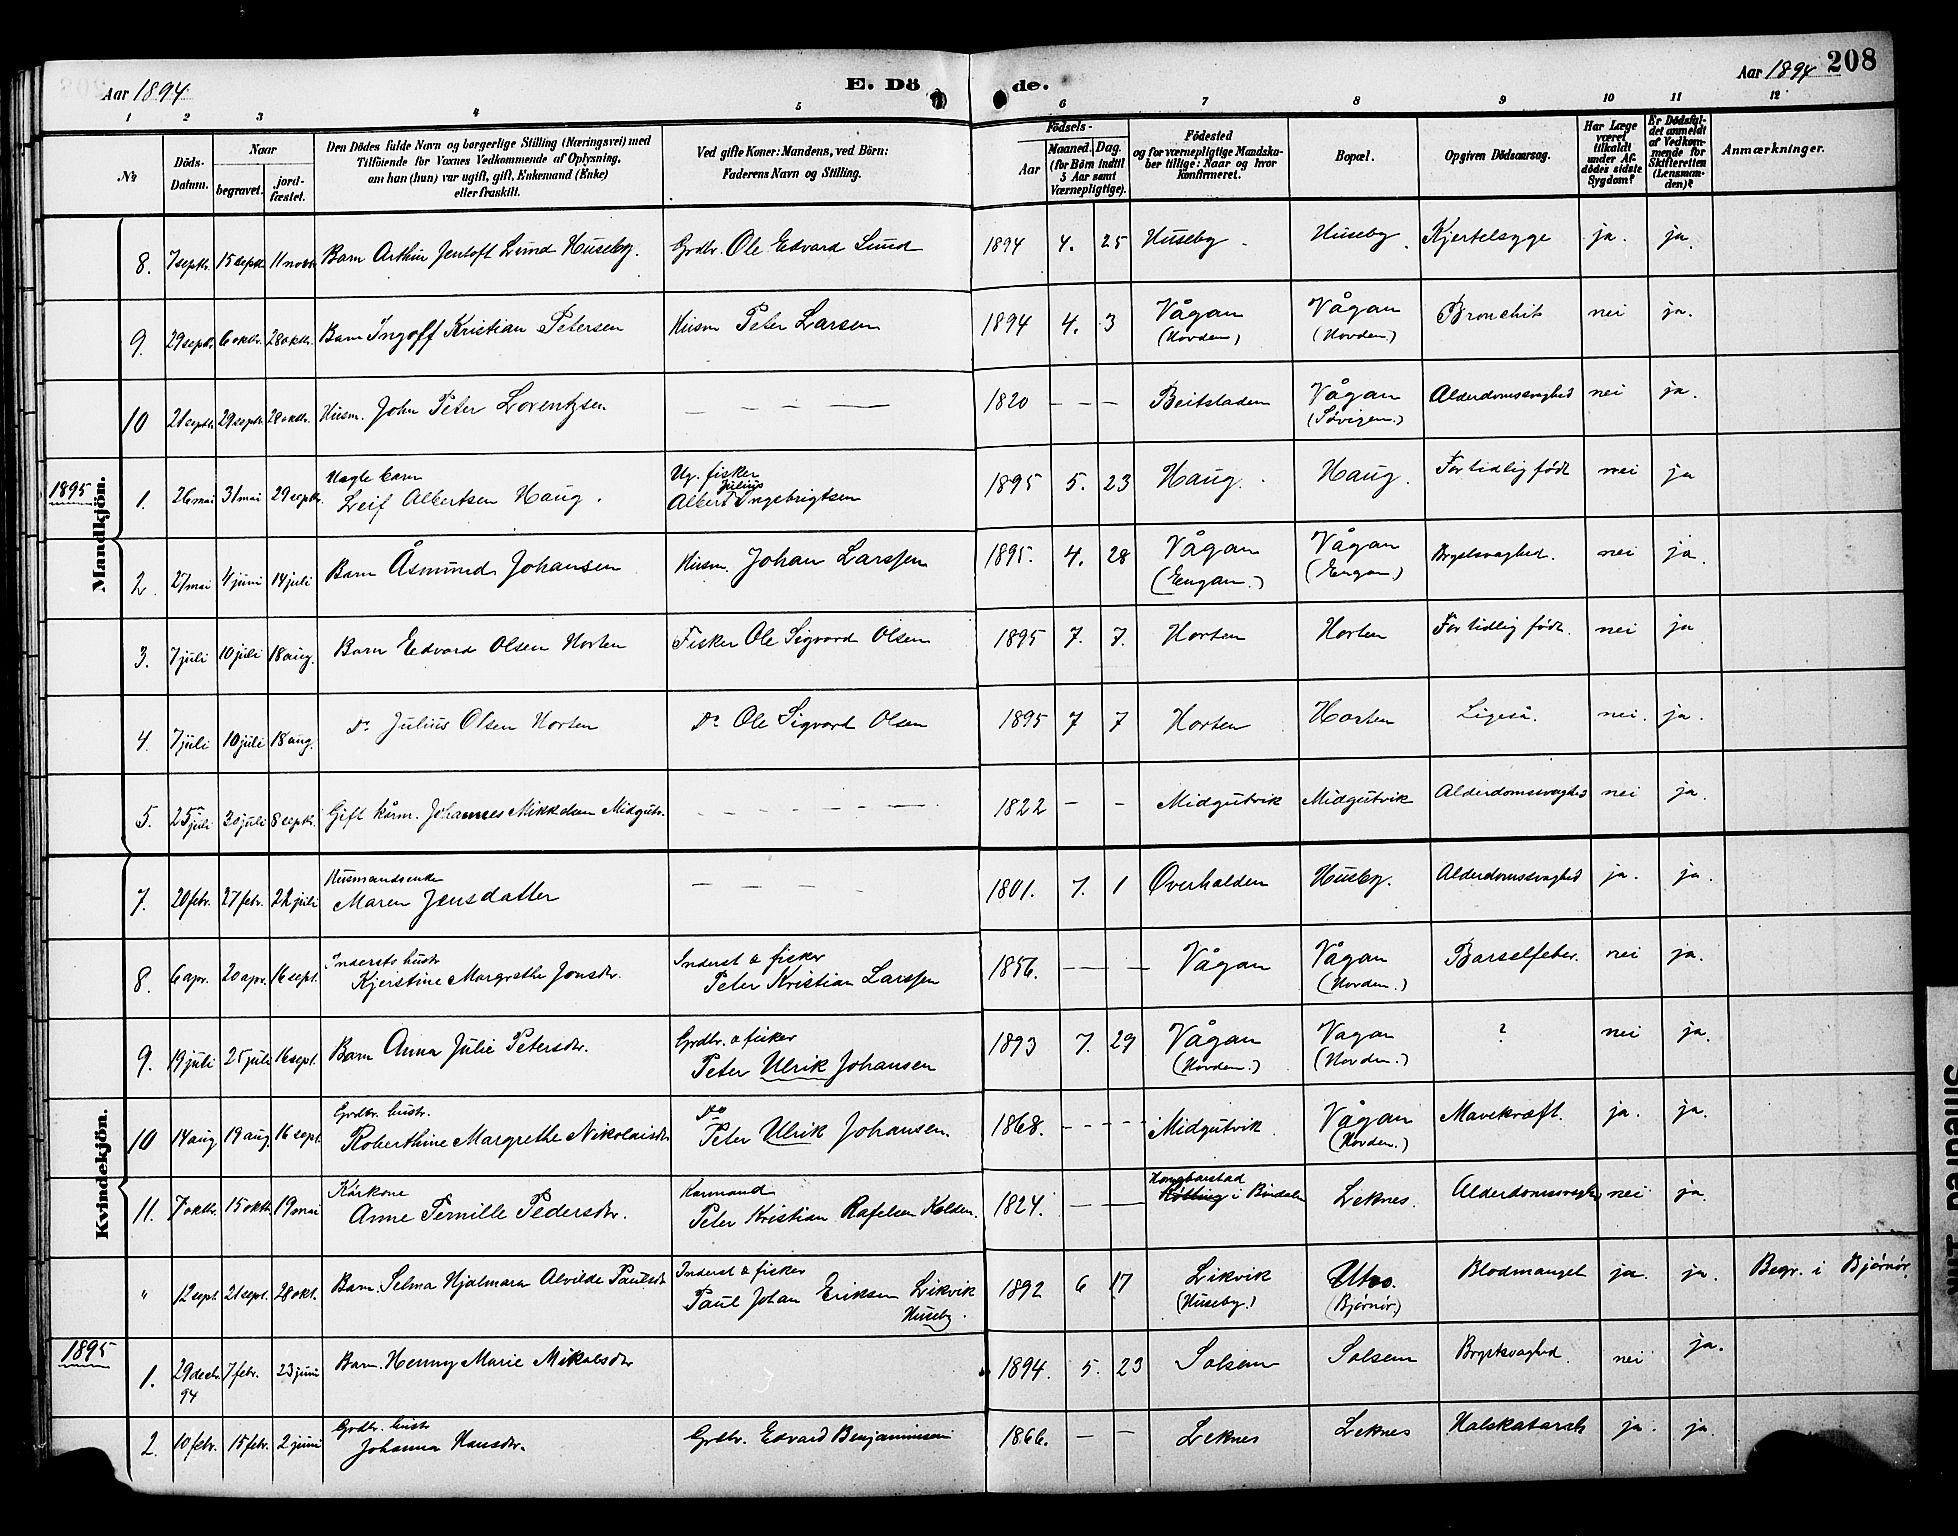 Aar 1894. E. Dö de. Aar 1894 208
1 2 3 4 5 6 7 8 9 10 11 12
No
Döds-Datum.
Naar
begravet.
jord-fæstet.
Den Dödes fulde Navn og borgerlige Stilling (Næringsvei) med
Tilföiende for Voxnes Vedkommende af Oplysning,
om han (hun) var ugift, gift, Enkemand (Enke)
eller fraskilt.
Ved gifte Koner: Mandens, ved Börn:
Faderens Navn og Stilling.
Födsels-
Aar
Maaned. Dag.
(for Börn indtil
5 Aar samt
Værnepligtige).
Födested
og for værnepligtige Mandska-
ber tillige: Naar og hvor
konfirmeret.
Bopæl.
Opgiven Dödsaarsag.
Har Læge
været
tilkaldt
under Af-
dödes sidste
Sygdom?
Er Dödsfal-
det anmeldt
af Vedkom-
mende for
Skifteretten
(Lensman-
den)?
Anmærkninger.
Mandkjön.
8. 7 septbr. 15 septbr. 11 novbr. Barn Arthur Jentoft Lund Huseby. Grdbr. Ole Edvard Lund 1894 4. 25 Huseby. Huseby. Kjertelsyge ja. ja.
9. 29 septbr. 6 oktbr. 28 oktbr. Barn Ingoff Kristian Petersen Husm Peter Larsen 1894 4. 3 Vågan (Hovden) Vågan (Hovden) Bronchit nei ja.
10 21 septbr. 29 septbr. 28 oktbr. Husm. John Peter Lorentzen — — — — — 1820 — — — Beitstaden Vågan (Søvigen.) Alderdomssvaghed nei ja.
1895
1. 26 mai 31 mai 29 septbr. Uægte barn Leif Albertsen Haug. Ug. fisker Albert Julius Ingebrigtsen 1895 5. 23 Haug. Haug. For tidlig født nei ja
2. 27 mai 4 juni 14 juli Barn Åsmund Johansen Husm. Johan Larssen 1895. 4. 28 Vågan (Engan.) Vågan (Engan) Brystsvaghed. nei ja.
3. 7 juli 10 juli 18 aug. Barn Edvard Olsen Horten Fisker Ole Sigvard Olsen 1895 7. 7. Horten Horten For tidlig født. nei ja
4. 7 juli 10 juli 18 aug. Do Julius Olsen Horten Do Ole Sigvard Olsen 1895 7 7 Horten Horten Ligeså. nei. ja.
5. 25 juli 30 juli 8 septbr. Gift kårm. Johannes Mikkelsen Midgutv. — — — — — 1822 — — Midgutvik Midgutvik Alderdomssvaghed nei ja.
Kvindekjön.
7. 20 febr. 27 febr. 22 juli Husmandsenke Maren Jensdatter — — — — 1801. 7. 1 Overhalden Huseby. Alderdomssvaghed ja. ja.
8. 6 apr. 20 apr. 16 sept. Indersts hustr Kjerstine Margrethe Jonsdtr. Inderst & fisker Peter Kristian Larssen 1856. — — — Vågan Vågan (Hovden.) Barselfeber. nei ja.
9. 19 juli 25 juli 16 sept. Barn Anna Julie Petersdtr. Grdbr. & fisker Peter Ulrik Johansen 1893 7. 29 Vågan (Hovden.) Vagan (Hovden.) ? nei ja.
10 14 aug 19 aug. 16 sept. Grdbr. hustr. Roberthine Margrethe Nikolaisdtr Do Peter Ulrik Johansen. 1868. — — — — Midgutvik. Vågan (Hovden.) Mavekræft. ja. ja.
11. 7 oktbr. 15 oktbr. 19 mai Kårkone Anne Pernille Pedersdtr. Karmand Peter Kristian Rafelsen Kolden. 1824. — — i Bindalen Leknes. Alderdomssvaghed nei ja.
" 12 sept. 21 sept. 28 okt. Barn. Selma Hjalmara Alvilde Paulsdtr Inderst & fisker Paul Johan Eriksen Likvik Huseby. 1892 6 17 Likvik (Huseby.) Utvo. (Bjørnør) Blodmangel ja. ja. Begr. i Bjørnør.
1895
1. 29 decbr. 94 7 febr. 23 juni Barn. Henny Marie Mikalsdtr 1894. 5. 23 Solsem Solsem Brystsvaghed. nei ja.
2. 10 febr. 15 febr. 2 juni Grdbr. hustr Johanna Hansdtr. Grdbr. Edvard Benjaminsen 1866. — — Leknes Leknes Halskatarrh ja. ja.